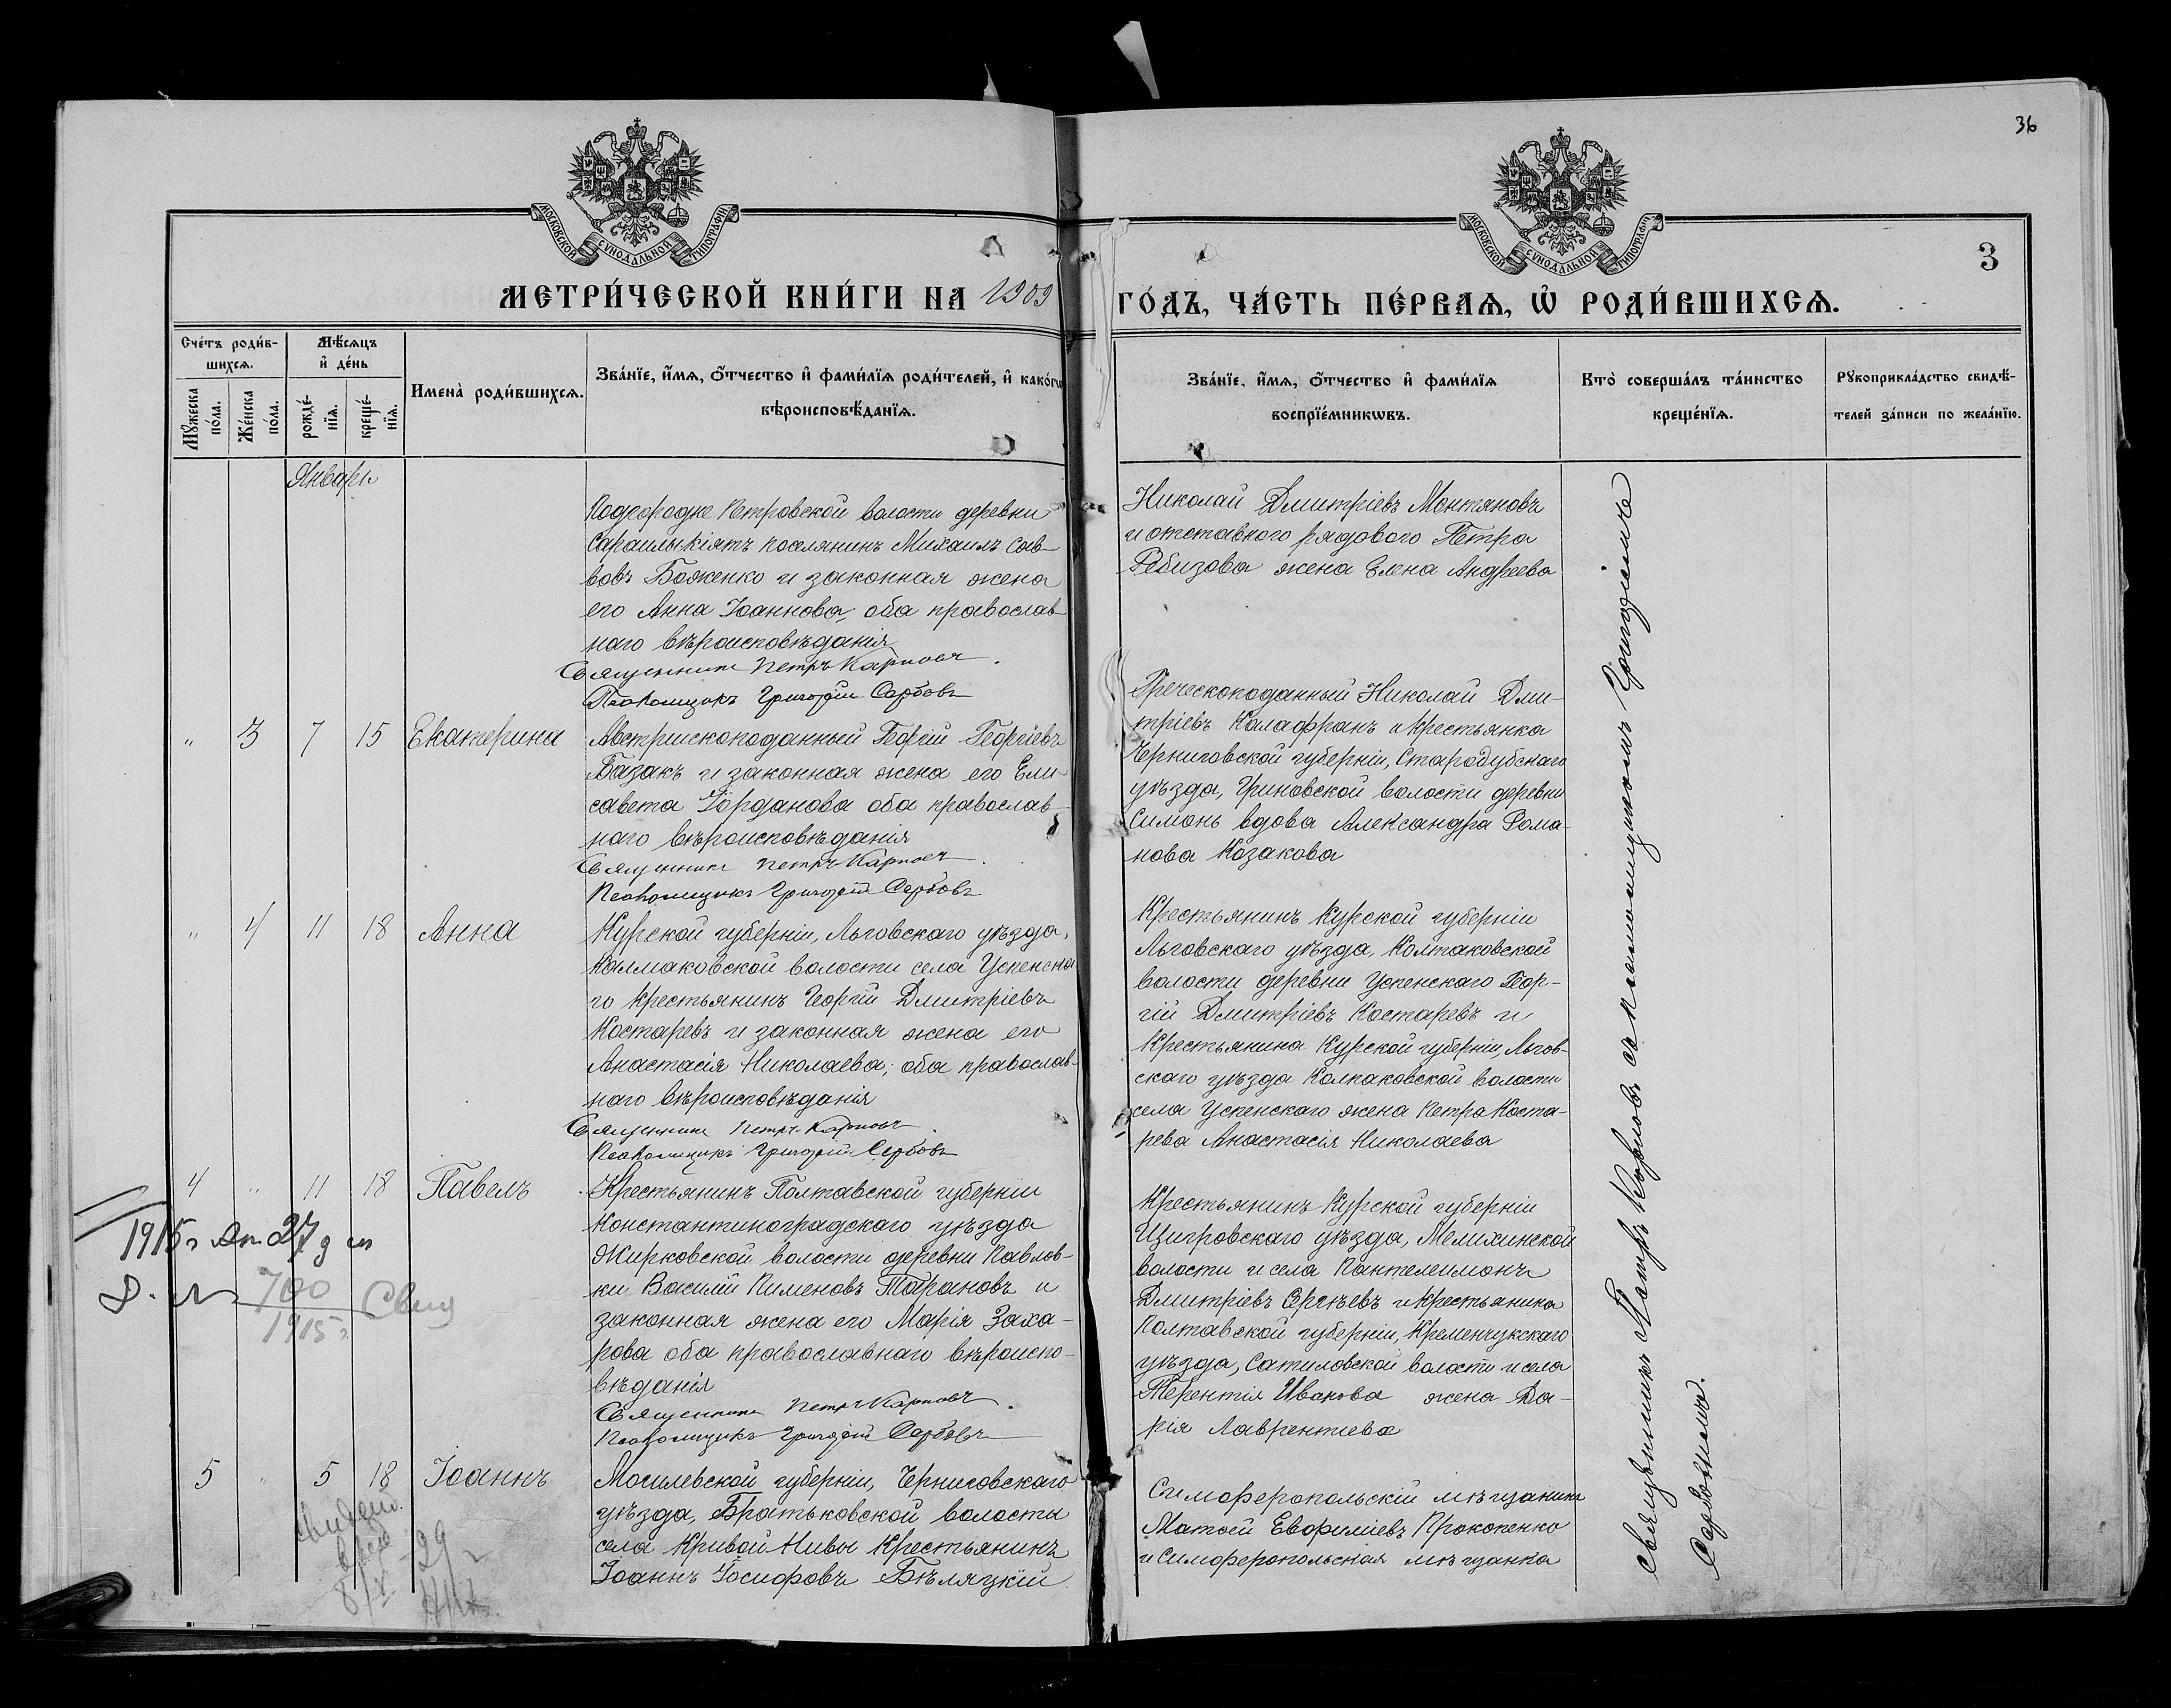 36
МОСКОВСКОЙ СУНОДАЛЬНОЙ ТИПОГРАФІИ
МОСКОВСКОЙ СУНОДАЛЬНОЙ ТИПОГРАФІИ
3
МЕТРИ́ЧЕСКОЙ КНИ́ГИ НА 1909
ГО́ДЪ, ЧА́СТЬ ПЕ́РВАѦ, Ѽ РОДИ́ВШИХСѦ.
Сче́тъ роди́в-
шихсѧ.
Мꙋжеска по́ла.
Же́нска по́ла.
Мѣ́сѧцъ
и҆ де́нь
рожде́-
нїѧ.
креще́-
нїѧ.
Имена̀ роди́вшихсѧ.
Зва́нїе, и҆́мѧ, ѻ҆́тчество и҆ фами́лїѧ роди́телей, и҆ како́гѡ
вѣроисповѣ́данїѧ.
Зва́нїе, и҆́мѧ, ѻ҆́тчество и҆ фами́лїѧ
воспрїе́мникѡвъ.
Кто̀ соверша́лъ та́инство
креще́нїѧ.
Рꙋкоприкла́дство свидѣ́-
телей за́писи по жела́нїю.
Январь
Петровской волости деревни
поселянинъ Михаилъ Сав-
вовъ Боженко и законная жена
его Анна Іоаннова, оба православ-
наго вѣроисповѣданія
Священникъ Петръ Карповъ.
Псаломщикъ Григорій Сербовъ
Николай Дмитріевъ Монтяновъ
и отставного рядового Петра
Ребизова жена Елена Андреева
" 3 7 15 Екатерина
Австрійскоподанный Георгій Георгіевъ
Базакъ и законная жена его Ели-
савета Іорданова оба православ-
наго вѣроисповѣданія
Священникъ Петръ Карповъ.
Псаломщикъ Григорій Сербовъ
Греческоподанный Николай Дми-
тріевъ Калафранъ и крестьянка
Черниговской губерніи, Стародубскаго
уѣзда, Гриновской волости деревни
Симонь вдова Александра Рома-
нова Козакова
" 4 11 18 Анна
Курской губерніи, Льговскаго уѣзда,
Колмаковской волости села Успенска-
го крестьянинъ Георгій Дмитріевъ
Костаревъ и законная жена его
Анастасія Николаева, оба православ-
наго вѣроисповѣданія
Священникъ Петръ Карповъ.
Псаломщикъ Григорій Сербовъ
Крестьянинъ Курской губерніи
Льговскаго уѣзда, Колпаковской
волости деревни Успенскаго Геор-
гій Дмитріевъ Костаревъ и
Крестьянина Курской губерніи, Льгов-
скаго уѣзда Колпаковской волости
села Успенскаго жена Петра Коста-
рева Анастасія Николаева
4 " 11 18 Павелъ
Крестьянинъ Полтавской губерніи
Константиноградскаго уѣзда
Жирковской волости деревни Павлов-
ки Василій Пименовъ Тарановъ и
законная жена его Марія Заха-
рова оба православнаго вѣроиспо-
вѣданія
Священникъ Петръ Карповъ.
Псаломщикъ Григорій Сербовъ
1915 г 27
700
1915 г.
Крестьянинъ Курской губерніи
Щигровскаго уѣзда, Мелихинской
волости и села Пантелеимонъ
Дмитріевъ Сергѣевъ и крестьянина
Полтавской губерніи, Кременчукскаго
уѣзда, волости и села
Терентія Иванова жена Да-
рія Лаврентіева
5 " 5 18 Іоаннъ
Могилевской губерніи, Черниговскаго
уѣзда, Братьковской волости
села Кривой Нивы Крестьянинъ
Іоаннъ Іосифовъ Бѣляцкій
29
Симферопольскій мѣщанинъ
Матѳей Евфиміевъ Прокопенко
и Симферопольская мѣщанка
Священникъ Петръ Карповъ съ псаломщикомъ Григоріемъ
Сербовымъ.